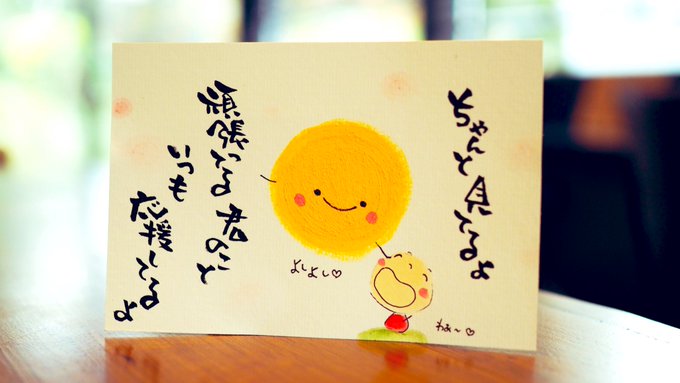 ちゃんと見てるよ
よしよし♡
わぁ〜♡
頑張ってる君のこと
いつも
応援してるよ